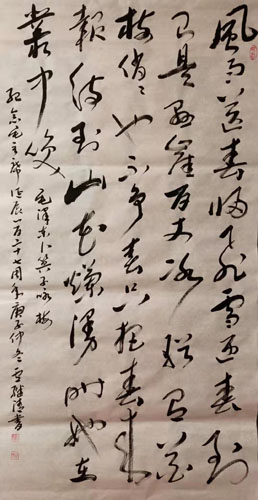 风雨送春归飞雪迎春到
已是悬崖百丈冰犹有花
枝俏俏也不争春只把春来
报待到山花烂漫时她在
丛中笑
毛泽东卜算子咏梅
纪念毛主席诞辰一百二十七周年庚子仲冬